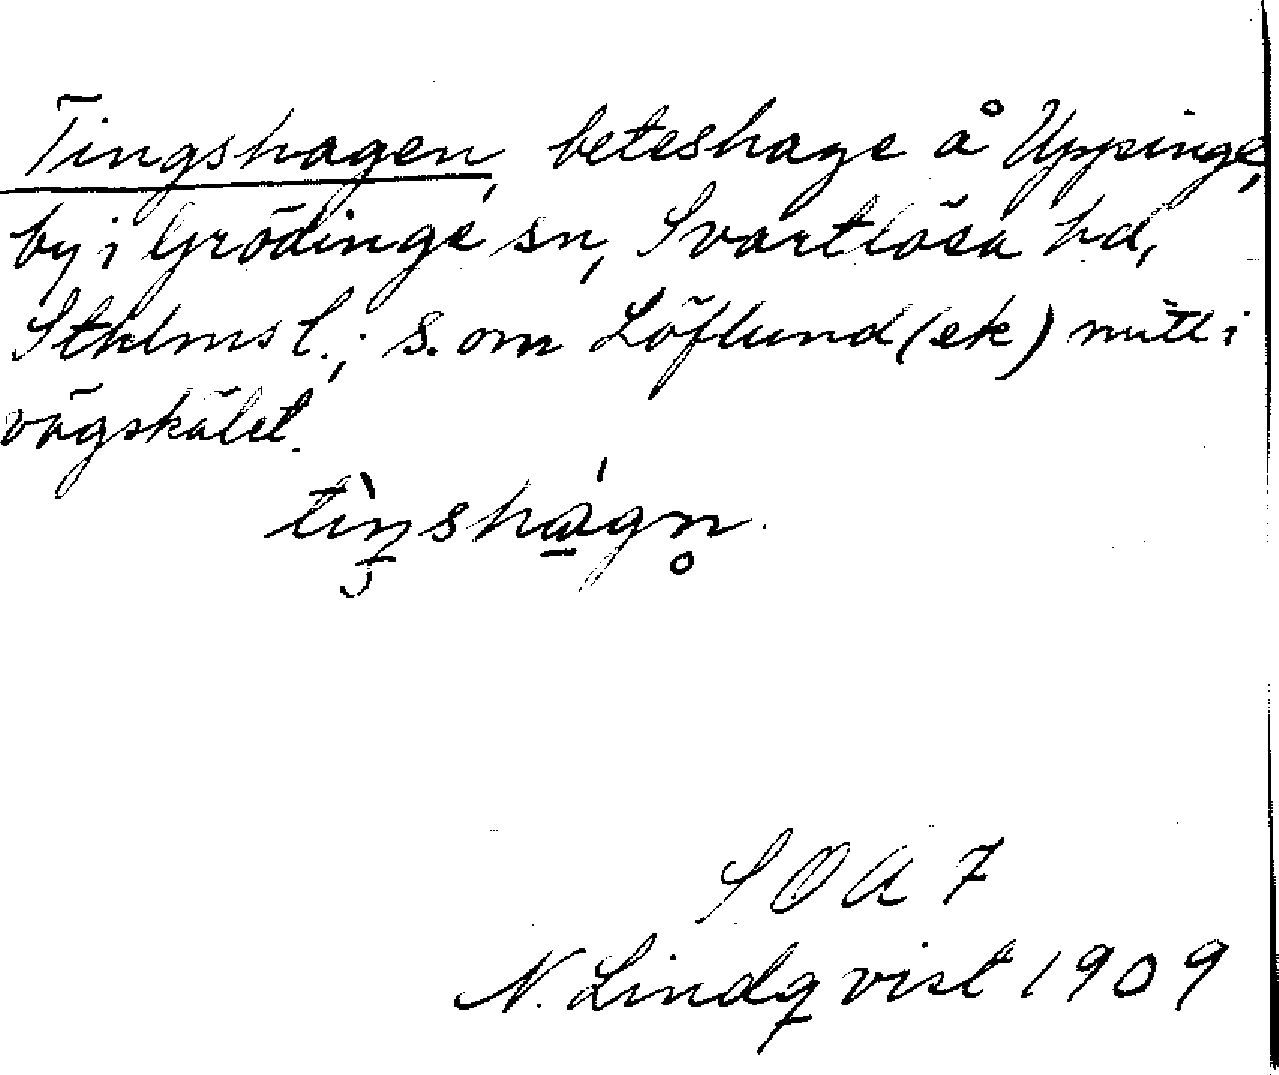 Tingshagen, beteshage å Uppinge,
by i Grödinge sn, Svartlösa hd,
Sthlms l.; S. om Löflund (ek) mitt i
vägskälet.
tìŋshágn̥.
SOA 7
N. Lindqvist 1909